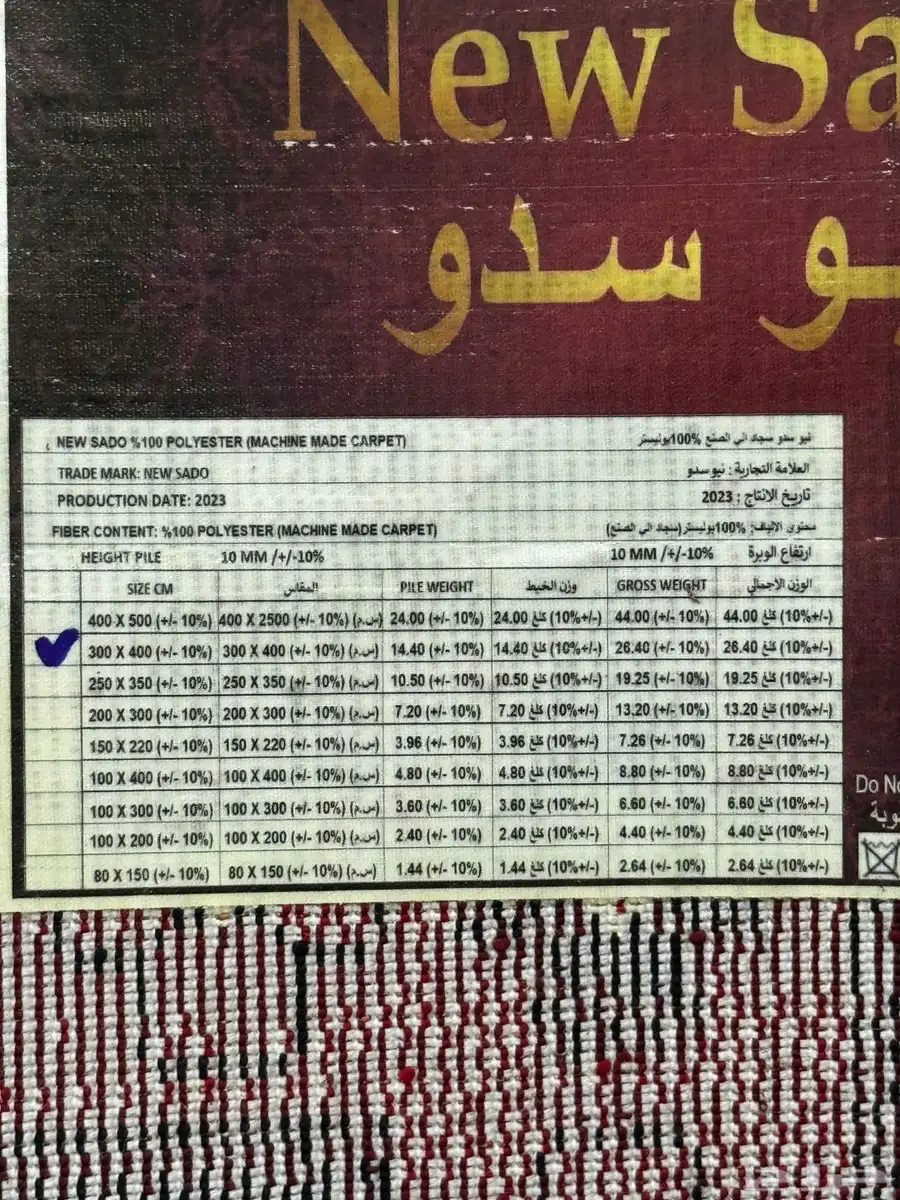 New Sa
و سدو
NEW SADO %100 POLYESTER (MACHINE MADE CARPET) نيو سدو سجاد الي الصنع 100%بوليستر
TRADE MARK: NEW SADO العلامة التجارية : نيوسدو
PRODUCTION DATE: 2023 تاريخ الانتاج : 2023
FIBER CONTENT: %100 POLYESTER (MACHINE MADE CARPET) محتوى الالياف: 100%بوليستر(سجاد الي الصنع)
HEIGHT PILE 10 MM /+/-10% 10 MM /+/-10% ارتفاع الوبرة
SIZE CM المقاس PILE WEIGHT وزن الخيط GROSS WEIGHT الوزن الاجمالي
400 X 500 (+/- 10%) 400 X 2500 (+/- 10%) (س.م) 24.00 (+/- 10%) 24.00 كلغ (10%+/-) 44.00 (+/- 10%) 44.00 كلغ (10%+/-)
300 X 400 (+/- 10%) 300 X 400 (+/- 10%) (س.م) 14.40 (+/- 10%) 14.40 كلغ (10%+/-) 26.40 (+/- 10%) 26.40 كلغ (10%+/-)
250 X 350 (+/- 10%) 250 X 350 (+/- 10%) (س.م) 10.50 (+/- 10%) 10.50 كلغ (10%+/-) 19.25 (+/- 10%) 19.25 كلغ (10%+/-)
200 X 300 (+/- 10%) 200 X 300 (+/- 10%) (س.م) 7.20 (+/- 10%) 7.20 كلغ (10%+/-) 13.20 (+/- 10%) 13.20 كلغ (10%+/-)
150 X 220 (+/- 10%) 150 X 220 (+/- 10%) (س.م) 3.96 (+/- 10%) 3.96 كلغ (10%+/-) 7.26 (+/- 10%) 7.26 كلغ (10%+/-)
100 X 400 (+/- 10%) 100 X 400 (+/- 10%) (س.م) 4.80 (+/- 10%) 4.80 كلغ (10%+/-) 8.80 (+/- 10%) 8.80 كلغ (10%+/-)
100 X 300 (+/- 10%) 100 X 300 (+/- 10%) (س.م) 3.60 (+/- 10%) 3.60 كلغ (10%+/-) 6.60 (+/- 10%) 6.60 كلغ (10%+/-)
100 X 200 (+/- 10%) 100 X 200 (+/- 10%) (س.م) 2.40 (+/- 10%) 2.40 كلغ (10%+/-) 4.40 (+/- 10%) 4.40 كلغ (10%+/-)
80 X 150 (+/- 10%) 80 X 150 (+/- 10%) (س.م) 1.44 (+/- 10%) 1.44 كلغ (10%+/-) 2.64 (+/- 10%) 2.64 كلغ (10%+/-)
Do No